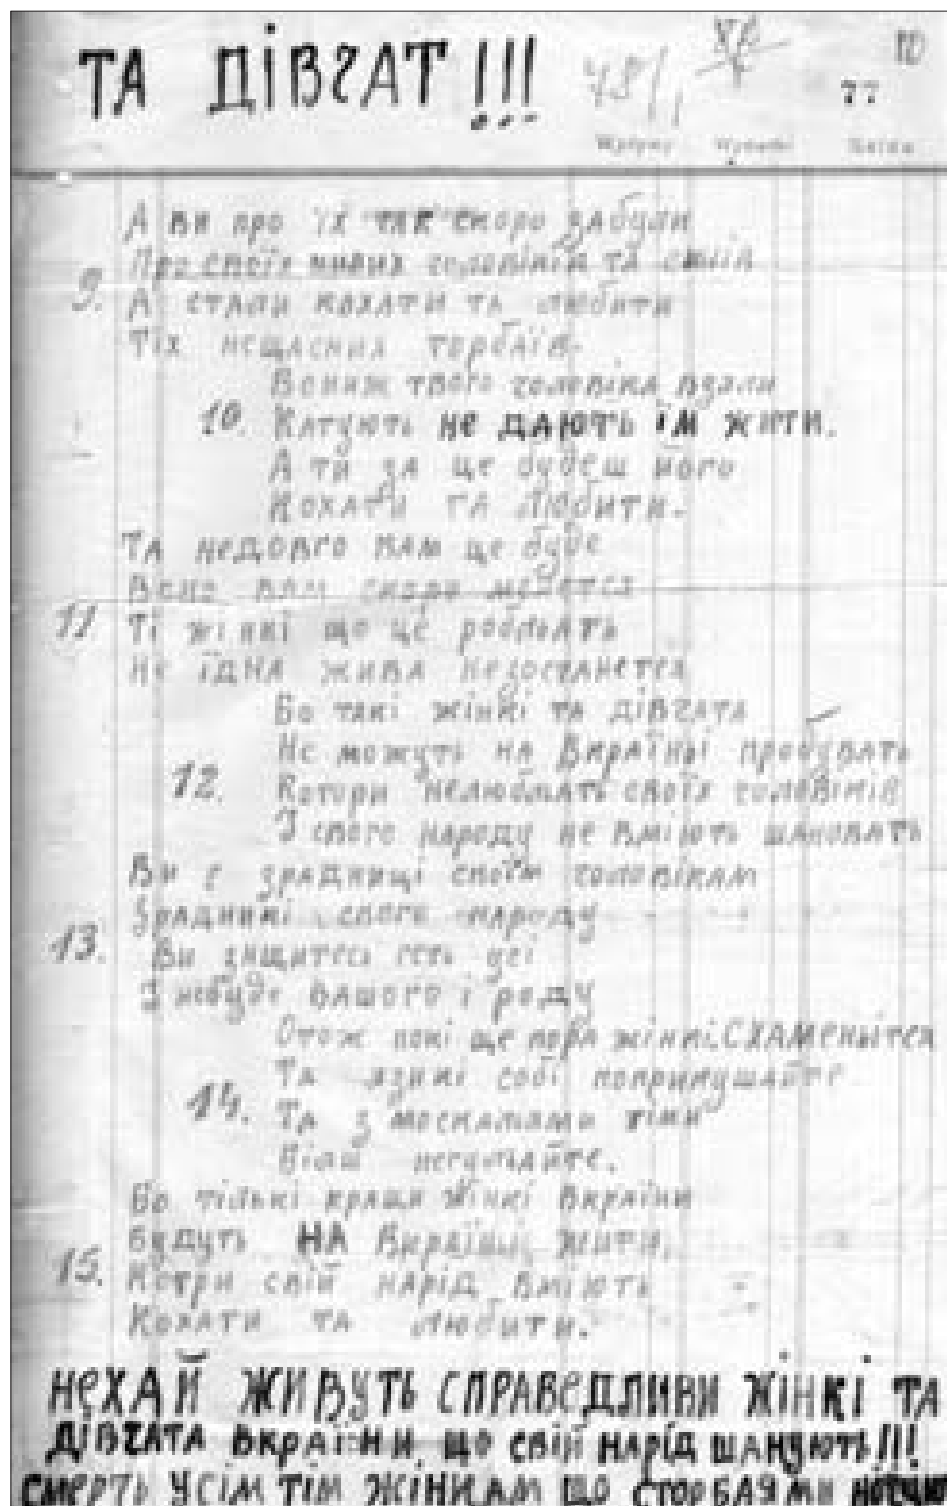 ТА ДІВЧАТ!!!
10
77
А ви про їх так скоро забули
Про своїх милих чоловіків та синів
9. А стали кохати та любити
Тіх нещасних торбаїв.
Вониж твого чоловіка взяли
10. Катують не дають їм жити.
А ти за це будеш його
Кохати та любити.
Та недовго вам це буде
Воно вам скоро
11 Ті жінкі що це роблять
Не їдна жива незостанется
Бо такі жінкі та дівчата
Не можуть на Вкраїньі пробувать
12. Котори нелюблять своїх чоловіків
І свого народу не вміють шановать
Ви є зрадниці своїм чоловікам
Зрадникі свого народу
13. Ви
І небуде вашого і роду
Отож покі ще пора жінкі. Схаменьітся
Та язикі собі поприкушайте
14. Та з москалями тіми
Більш негуляйте.
Бо тількі кращи жінкі Вкраїни
Будуть НА Вкраїньі жити,
15. Котри свій нарід вміють
Кохати та любити.
НЕХАЙ ЖИВУТЬ СПРАВЕДЛИВИ ЖІНКІ ТА
ДІВЧАТА ВКРАЇНИ ЩО СВІЙ НАРІД ШАНУЮТЬ!!!
СМЕРТЬ УСІМ ТІМ ЖІНКАМ ЩО СТОРБАЯМИ